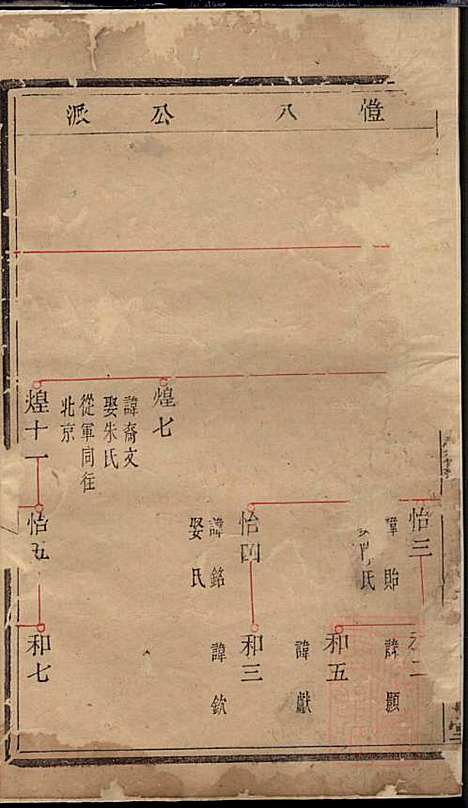 愷八公派
怡三
諱貽
氏
和二
諱願
和五
諱獻
怡四
諱銘
娶氏
和三
諱欽
煌七
諱裔文
娶朱氏
從軍同往
北京
煌十一
怡五
和七